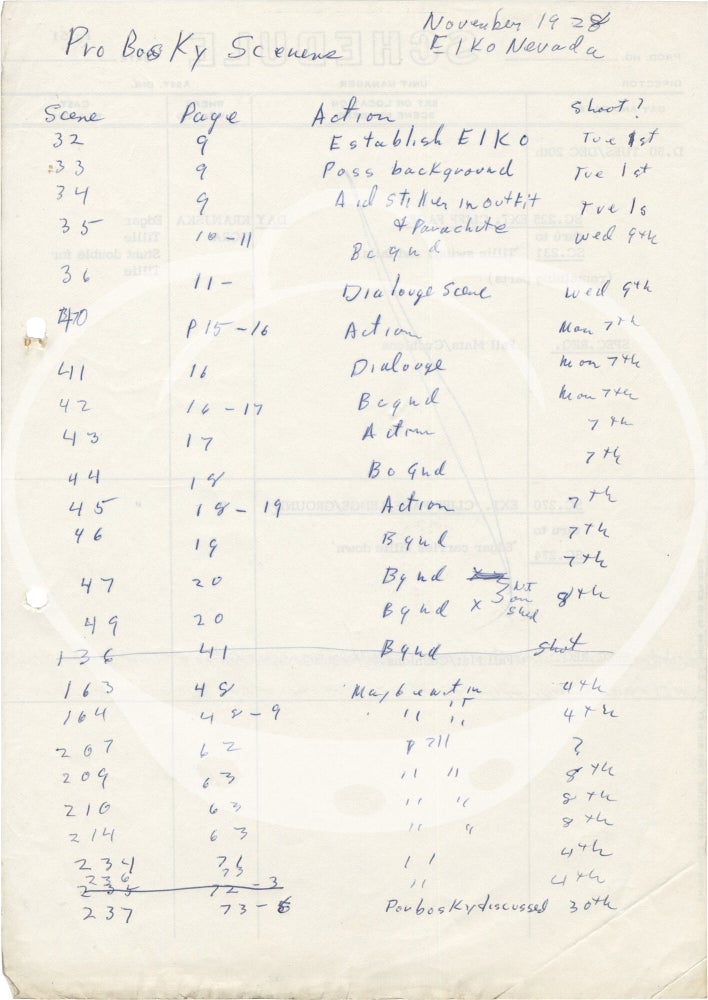 November 1928
Pro Bos Ky Scenens Elko Nevada
Scene Page Action Shoot?
32 9 Establish Elko Tue 1st
33 9 Pass background Tue 1st
34 9 And still in outfit Tue 1s
& Parachute
35 10-11 Bcgnd Wed 9th
36 11- Dialouge Scene Wed 9th
40 P15-16 Action Mon 7th
41 16 Dialouge Mon 7th
42 16-17 Bcgnd Mon 7th
43 17 Action 7th
44 18 Bcgnd 7th
45 18-19 Action 7th
46 19 Bgnd 7th
7th
47 20 Bgnd Not on Shed 8th
49 20 Bgnd x
136 41 Bgnd Shot
163 48 Maybe not in 4th
164 48-9 " " 4th
207 62 ?
209 63 " " 8th
210 63 " " 8th
214 63 " " 8th
234 71 " 4th
236 73
235 72-3 " 4th
237 73-6 Porbosky discussed 30th